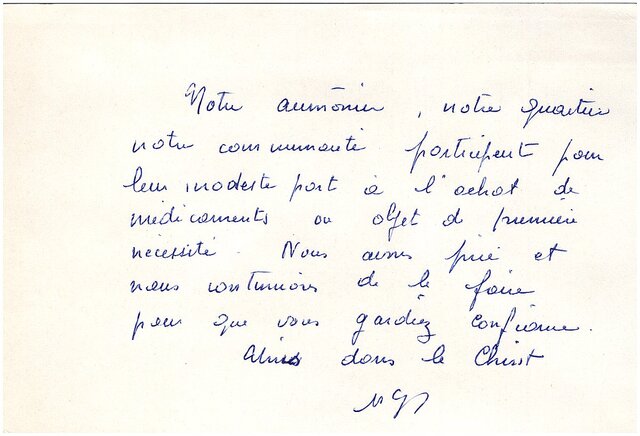 Notre aumônier, notre quartier
notre communauté participent pour
leur modeste part à l'achat de
médicaments ou objet de première
nécessité. Nous avons prié et
nous continuons de le faire
pour que vous gardiez confiance.
dans le Christ